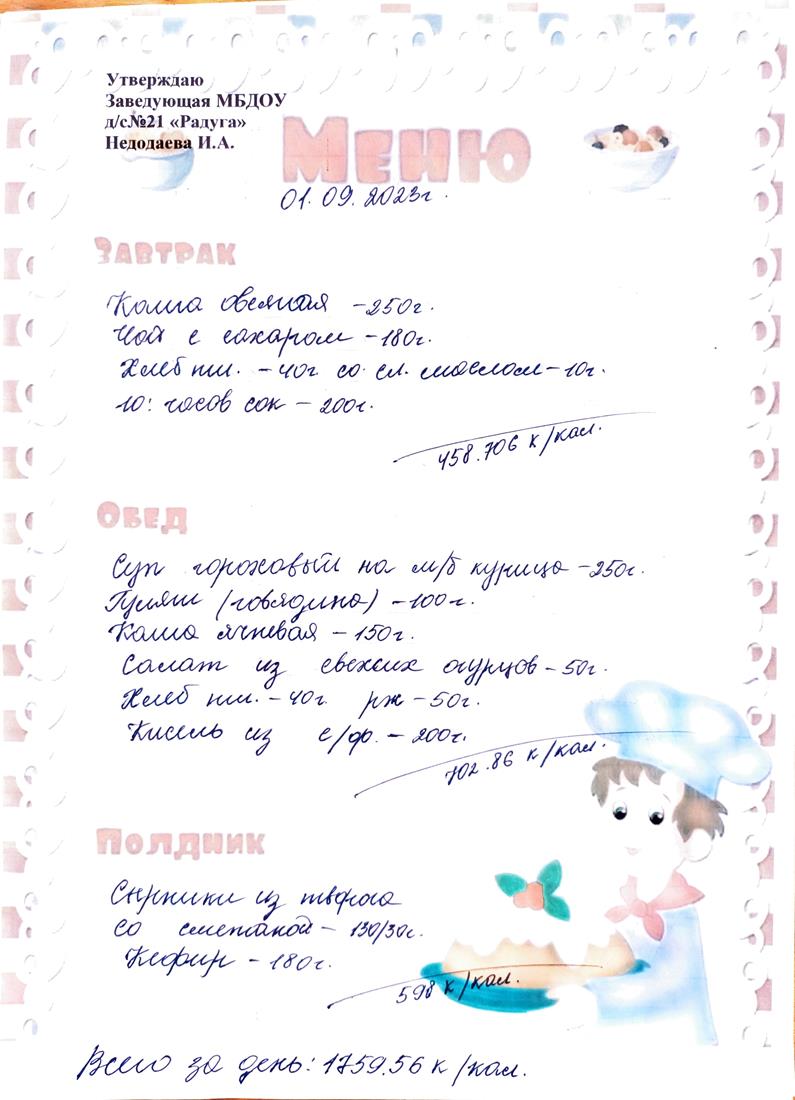 Утверждаю
Заведующая МБДОУ
д/с№21 «Радуга»
Недодаева И.А.
Меню
01.09.2023г.
Завтрак
Каша овсяная -250г.
Чай с сахаром -180г.
Хлеб пш. -40г со сл. маслом-10г.
10: часов сок - 200г.
458.706 к/кал.
Обед
Суп гороховый на м/б курица -250г.
Гуляш (говядина) -100г.
Каша ячневая - 150г.
Салат из свежих огурцов - 50г.
Хлеб пш. - 40г рж - 50г.
Кисель из с/фр. - 200г.
702.86 к/кал.
Полдник
Сырники из творога
со сметаной - 130/30г.
Кефир - 180г.
598 к/кал.
Всего за день: 1759.56 к/кал.